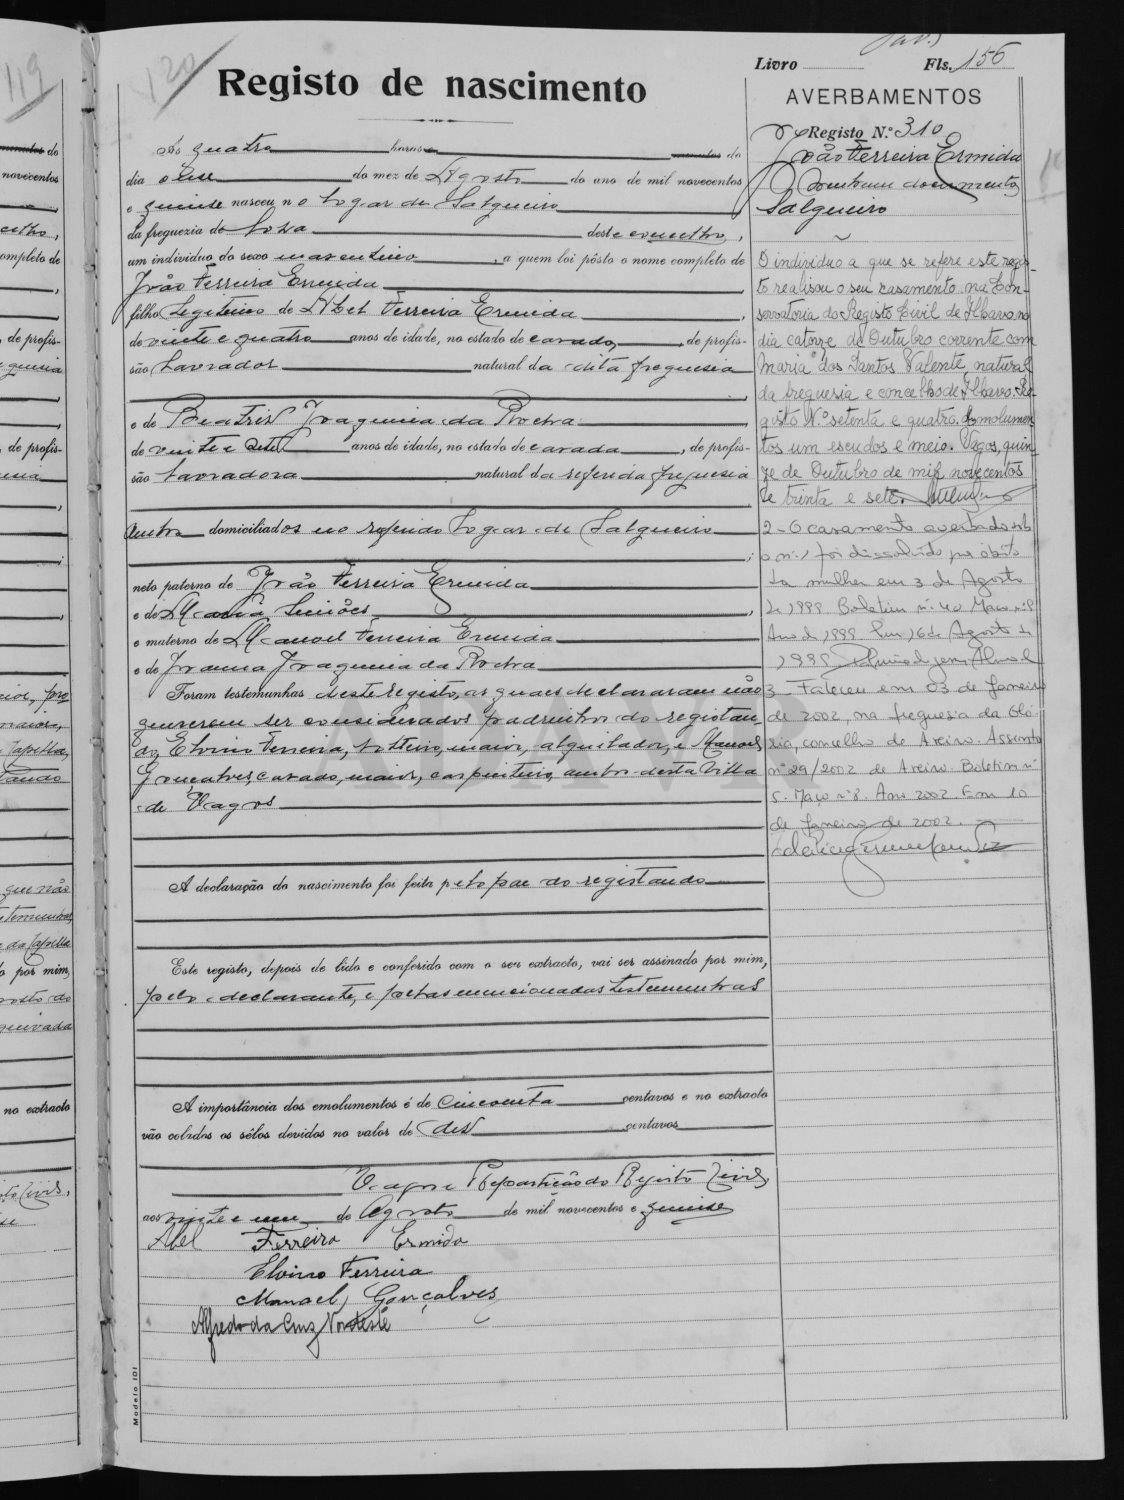 120
Registo de nascimento
Ás quatro horas e minutos do
dia onse do mez de Agosto do ano de mil novecentos
e quinse nasceu no logar de Salgueiro
da freguezia de Soza deste concelho,
um individuo do sexo masculino, a quem foi pôsto o nome completo de
João Ferreira Ermida
filho legitimo de Abel Ferreira Ermida,
de vinte e quatro anos de idade, no estado de casado, de profis-
são Lavrador natural da dita freguesia
e de Beatris Joaquina da Rocha,
de vinte e sete anos de idade, no estado de casada, de profis-
são Lavradora natural da referida freguesia
ambos domiciliados no referido logar de Salgueiro
neto paterno de João Ferreira Ermida
e de Maria Simões,
e materno de Manoel Ferreira Ermida
e de Joanna Joaquina da Rocha
Foram testemunhas deste registo, as quaes declararam não
quererem ser considerados padrinhos do registan-
do, Eloino Ferreira, solteiro, maior, alquilador, e Manoel
Gonçalves, casado, maior, carpinteiro, ambos desta Villa
de Vagos
A declaração do nascimento foi feita pelo pae do registando
Este registo, depois de lido e conferido com o seu extracto, vai ser assinado por mim,
pelo declarante, e pelas mencionadas testemunhas
A importância dos emolumentos é de cincoenta centavos e no extracto
vão colados os sêlos devidos no valor de dés centavos
Vagos e Repartição do Registo Civil,
aos vinte e um de Agosto de mil novecentos e quinse
Abel Ferreira Ermida
Eloino Ferreira
Manoel Gonçalves
Alfredo da Cruz Nordeste
Modelo 101
Livro Fls. 156
AVERBAMENTOS
Registo N.º 310
João Ferreira Ermida
Nenhum documento
Salgueiro
O individuo a que se refere este regis-
to realisou o seu casamento na Con-
servatoria do Registo Civil de Ilhavo, no
dia catorze de Outubro corrente com
Maria dos Santos Valente, natural
da freguesia e concelho de Ilhavo. Re-
gisto N.º setenta e quatro. Emolumen-
tos um escudos e meio. Vagos, quin-
ze de Outubro de mil novecentos
e trinta e sete.
2 - O casamento averbado sob
o n.º 1 foi dissolvido por óbito
da mulher em 3 de Agosto
de 1988. Boletim n.º 40 Maço n.º 8
Ano de 1988. Em 16 de Agosto de
1988
3 - Faleceu em 03 de Janeiro
de 2002, na freguesia da Gló-
ria, concelho de Aveiro. Assento
n.º 29/2002 de Aveiro. Boletim n.º
5. Maço n.º 8. Ano 2002. Em 10
de Janeiro de 2002.